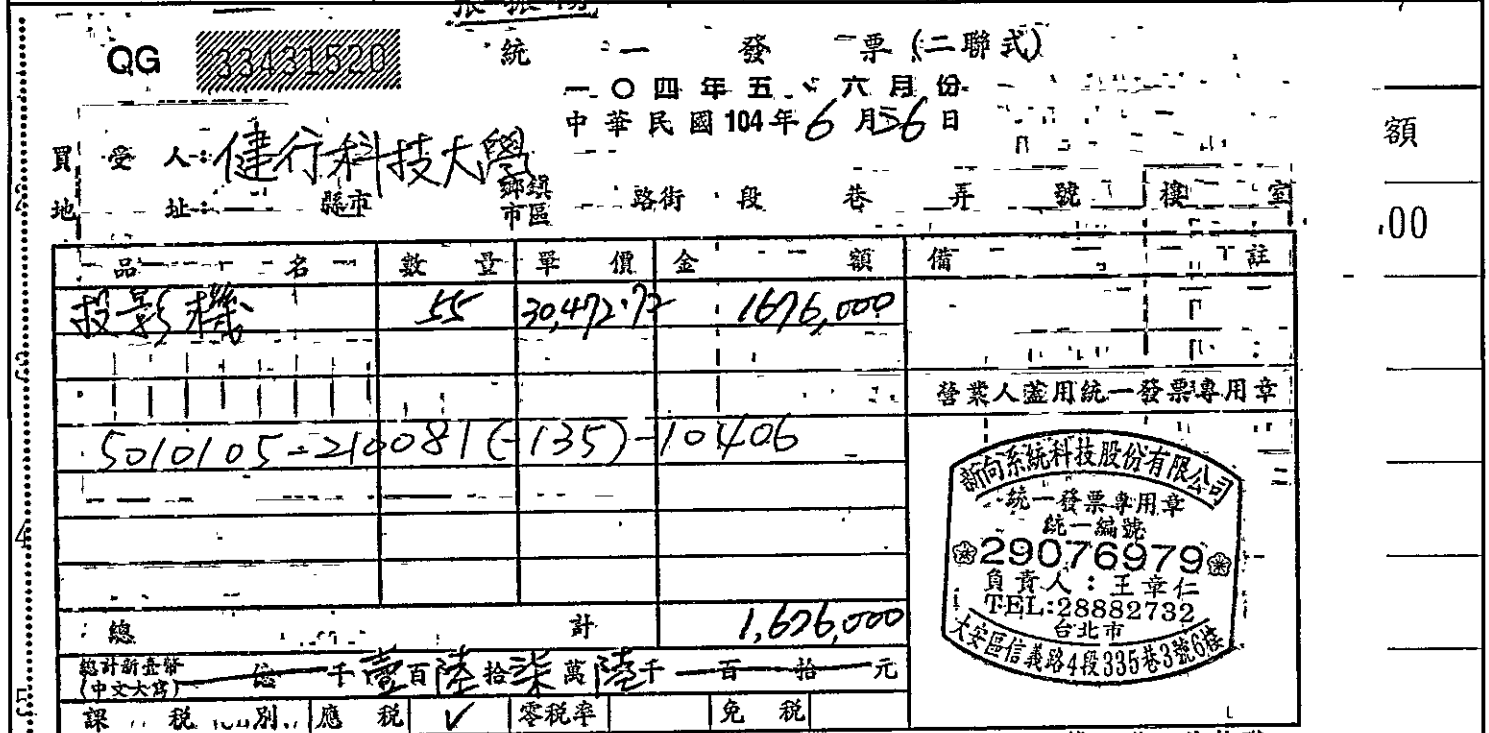 QG 33431520
統一發票(二聯式)
一〇四年五、六月份
中華民國104年6月26日
買受人:健行科技大學
地址: 縣市 鄉鎮市區 路街 段 巷 弄 號 樓 室
額
.00
品名 數量 單價 金額 備註
投影機 55 30,472.72 1676,000
營業人蓋用統一發票專用章
5010105-210081(-135)-10406
新向系統科技股份有限公司
統一發票專用章
統一編號
29076979
負責人:王章仁
TEL:28882732
台北市
大安區信義路4段335巷3號6樓
總計 1,676,000
總計新臺幣(中文大寫) 億 千壹百陸拾柒萬陸千 百 拾 元
課稅別 應稅 V 零稅率 免稅